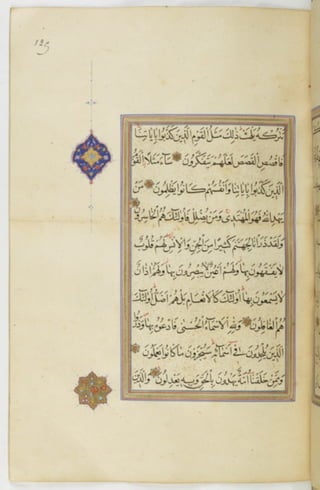 تتركه يلهث ذلك مثل القوم الذين كذبوا باياتنا
فاقصص القصص لعلهم يتفكرون ساء مثلا القو
الذين كذبوا باياتنا وانفسهم كانوا يظلمون من
يهد الله فهو المهتدى ومن يضلل فاولئك هم الخاسرون
ولقد ذرانا لجهنم كثيرا من الجن والانس لهم قلوب
لا يفقهون بها ولهم اعين لا يبصرون بها ولهم اذان
لا يسمعون بها اولئك كالانعام بل هم اضل اولئك
هم الغافلون ولله الاسماء الحسنى فادعوه بها وذروا
الذين يلحدون فى اسمائه سيجزون ما كانوا يعملون
وممن خلقنا امة يهدون بالحق وبه يعدلون والذين